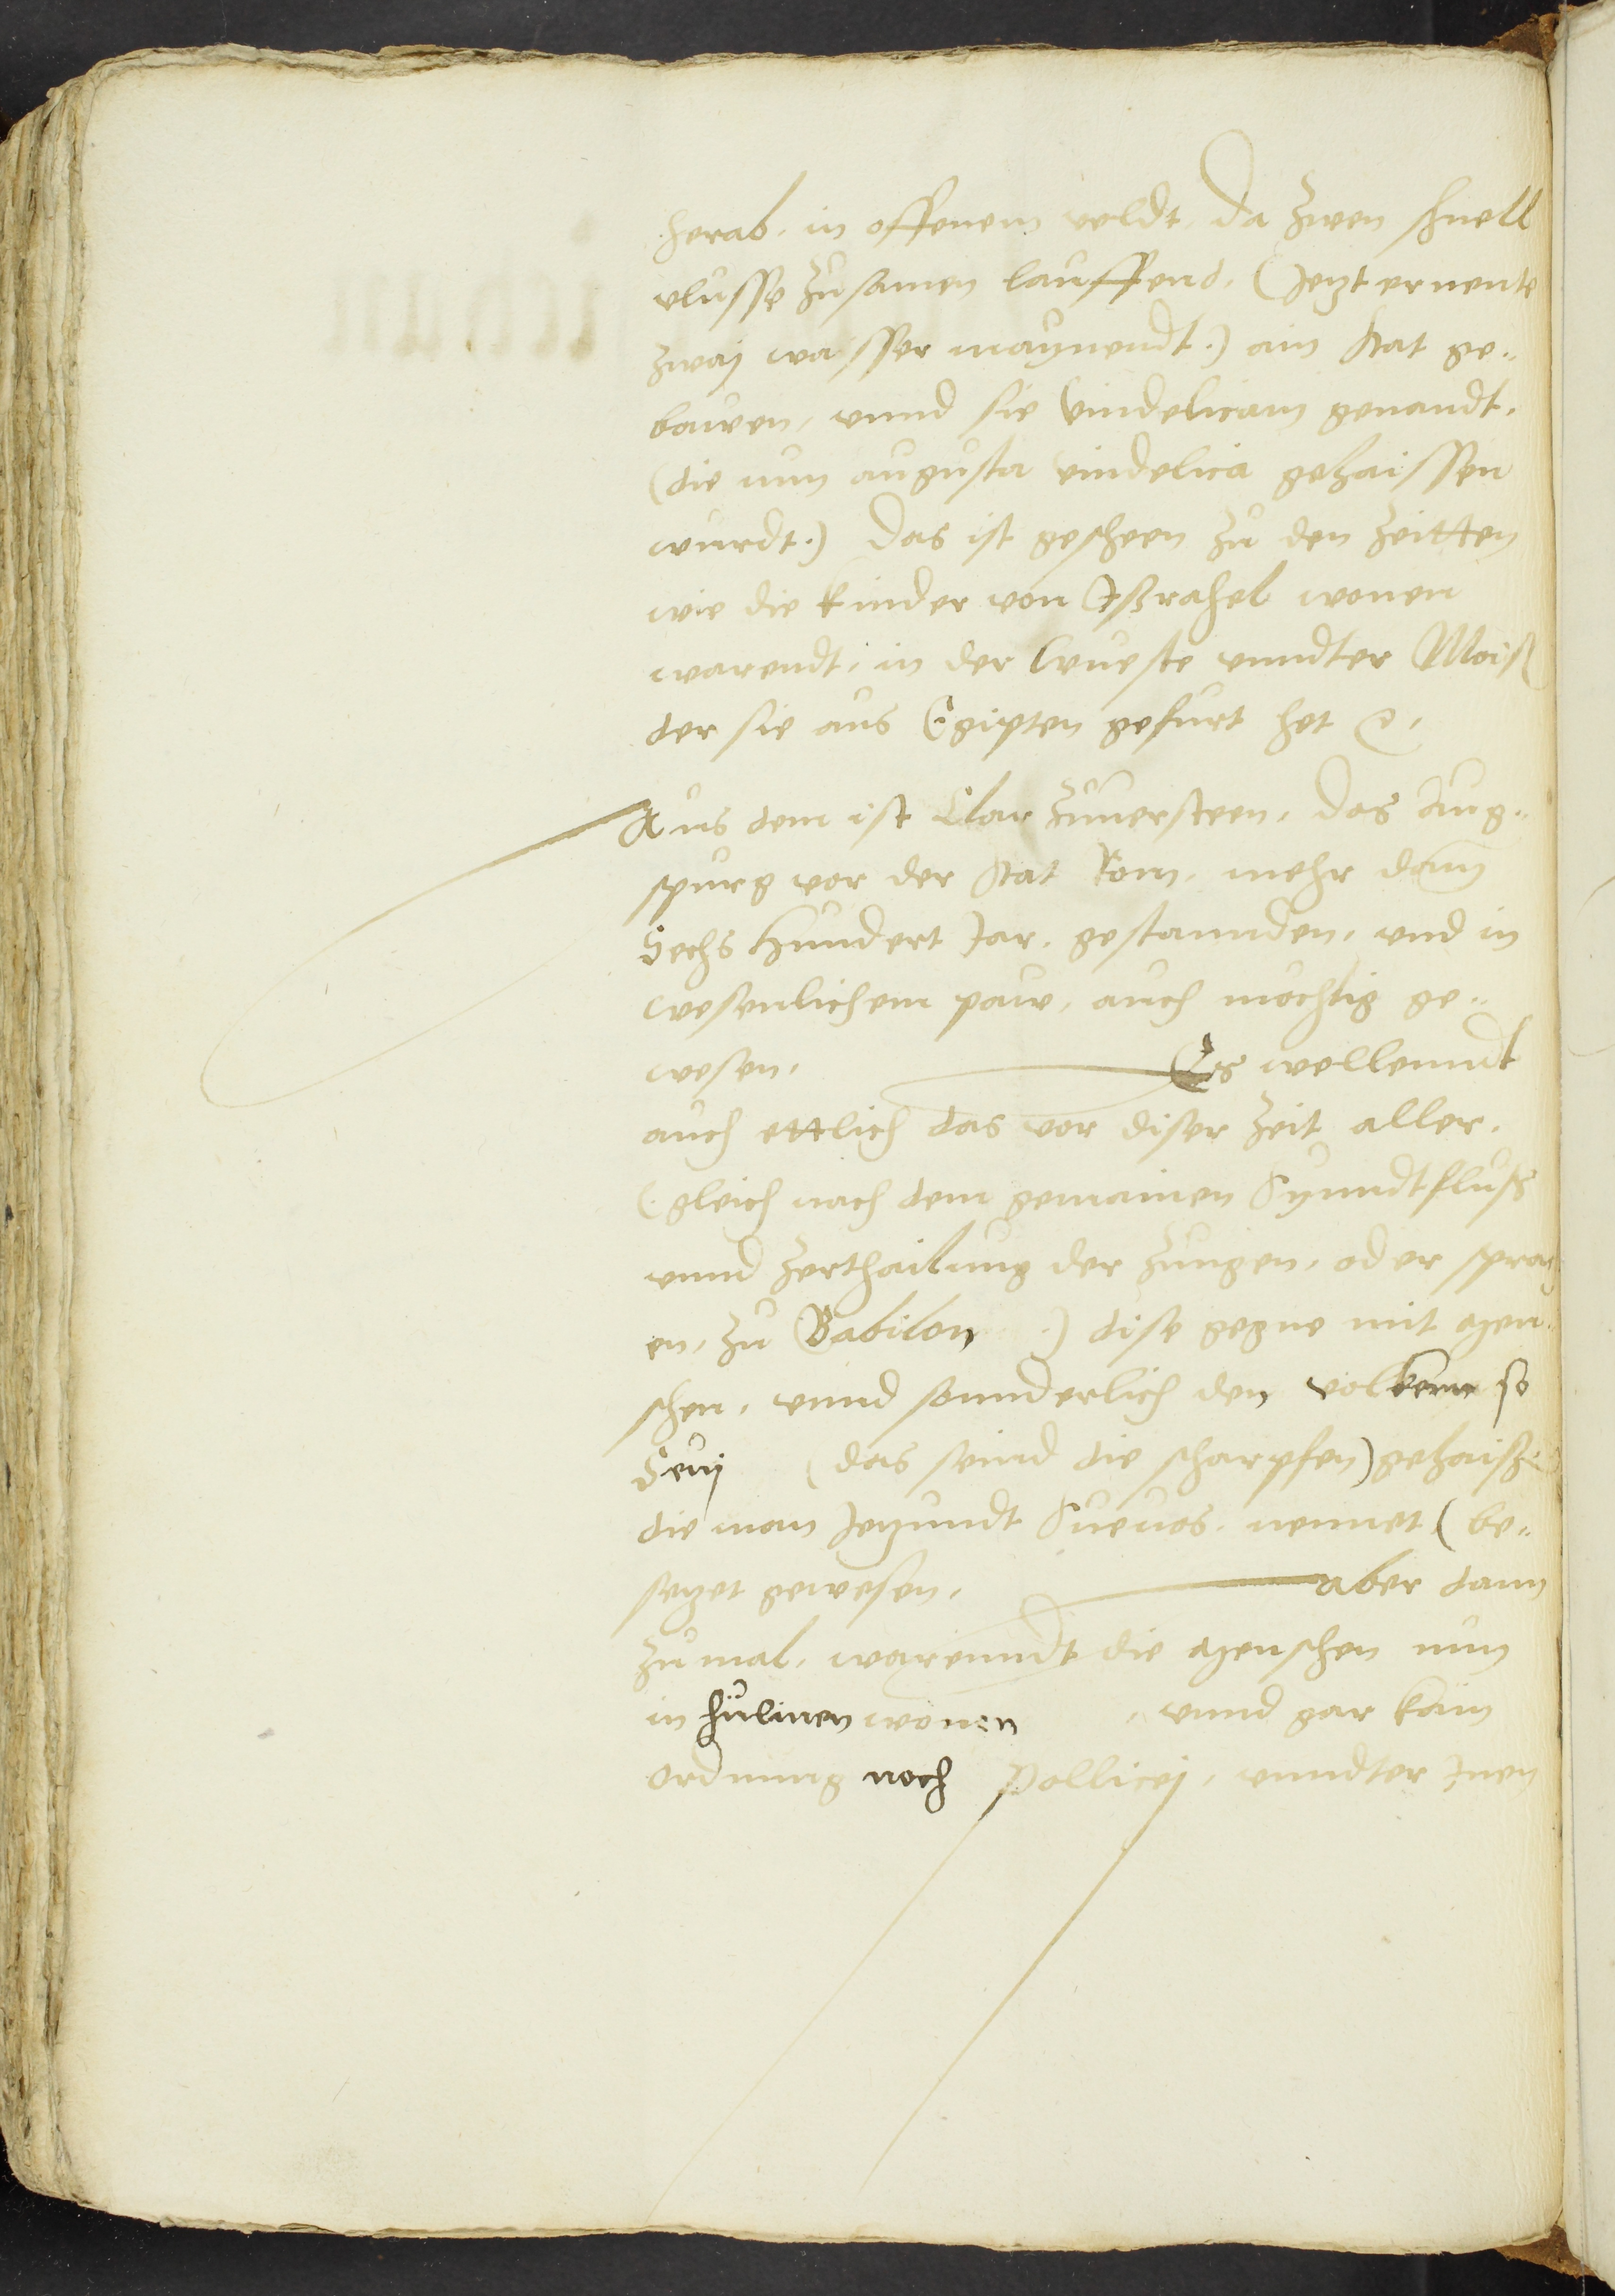 herab, in offenem veldt, da zwen schnell
vlusse zusamen lauffend, (Jetzt ernente
zway wasser maynendt.) ain stat ge¬
bawen, vnnd sie Vindelicam genandt,
(die nun augusta vindelica gehaissen
wurdt.) Das ist gescheen zu den zeitten
wie die kinder von Jßrahel wonen
warendt, in der Wueste vnndter Moiß
der sie aus Egipten gefurt het
Aus dem ist Clar zuuersteen, das Aug¬
spurg vor der stat Rom, mehr dann
Sechs hundert Jar, gestannden, vnd in
wesenlichem paw, auch mochtig ge¬
wesen, Es wellenndt
auch ettlich das vor diser zeit aller,
(gleich nach dem gemainen Synndtfluß
vnnd zerthailung der zungen, oder sprach
en, zu Babilon.) dise gegne mit men
schen, vnnd sonnderlich den volkern so
Seuj (das seind die scharpfen) gehaiß
die man Jetzundt Sueuos, nennet (be¬
setzet gewesen, aber dann
zu mal, warenndt die menschen nun
in hülinen wonen, vnnd gar kain
ordnung noch Pollicej, vnndter Jnen